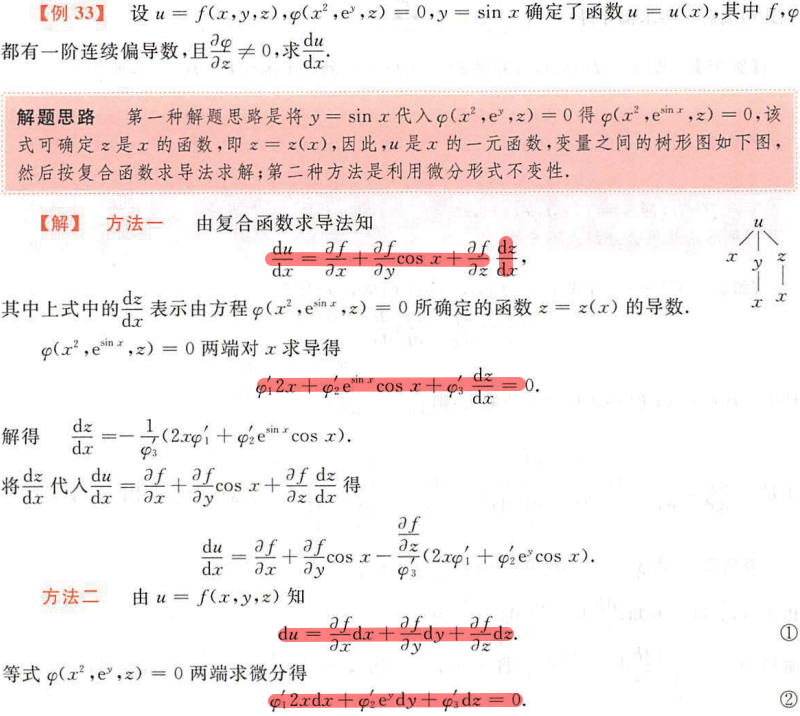 【例 33】 设 u = f(x,y,z),φ(x²,eʸ,z) = 0,y = sin x 确定了函数 u = u(x),其中 f,φ
都有一阶连续偏导数,且∂φ/∂z ≠ 0,求du/dx.
解题思路 第一种解题思路是将 y = sin x 代入 φ(x²,eʸ,z) = 0 得 φ(x²,e^{sin x},z) = 0,该
式可确定 z 是 x 的函数,即 z = z(x),因此,u 是 x 的一元函数,变量之间的树形图如下图,
然后按复合函数求导法求解;第二种方法是利用微分形式不变性.
【解】 方法一 由复合函数求导法知
du/dx = ∂f/∂x + ∂f/∂y cos x + ∂f/∂z dz/dx,
u
x y z
x x
其中上式中的dz/dx 表示由方程 φ(x²,e^{sin x},z) = 0 所确定的函数 z = z(x) 的导数.
φ(x²,e^{sin x},z) = 0 两端对 x 求导得
φ′₁2x + φ′₂e^{sin x}cos x + φ′₃ dz/dx = 0.
解得 dz/dx = − 1/φ′₃ (2xφ′₁ + φ′₂e^{sin x}cos x).
将dz/dx 代入du/dx = ∂f/∂x + ∂f/∂y cos x + ∂f/∂z dz/dx 得
du/dx = ∂f/∂x + ∂f/∂y cos x − (∂f/∂z)/φ′₃ (2xφ′₁ + φ′₂eʸcos x).
方法二 由 u = f(x,y,z) 知
du = ∂f/∂x dx + ∂f/∂y dy + ∂f/∂z dz. ①
等式 φ(x²,eʸ,z) = 0 两端求微分得
φ′₁2xdx + φ′₂eʸdy + φ′₃dz = 0. ②